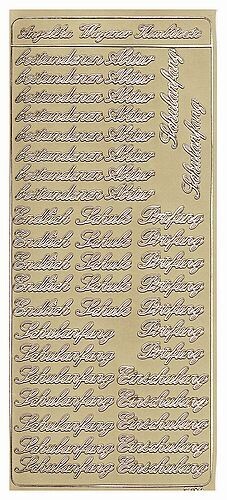 Angelika Wagener Kunstdesic
bestandenen Abitur
bestandenen Abitur
bestandenen Abitur
bestandenen Abitur
bestandenen Abitur
bestandenen Abitur
bestandenen Abitur
bestandenen Abitur
Schulanfang
Schulanfang
Endlich Schule Prüfung
Endlich Schule Prüfung
Endlich Schule Prüfung
Endlich Schule Prüfung
Endlich Schule Prüfung
Schulanfang Prüfung
Schulanfang Prüfung
Schulanfang Einschulung
Schulanfang Einschulung
Schulanfang Einschulung
Schulanfang Einschulung
Schulanfang Einschulung